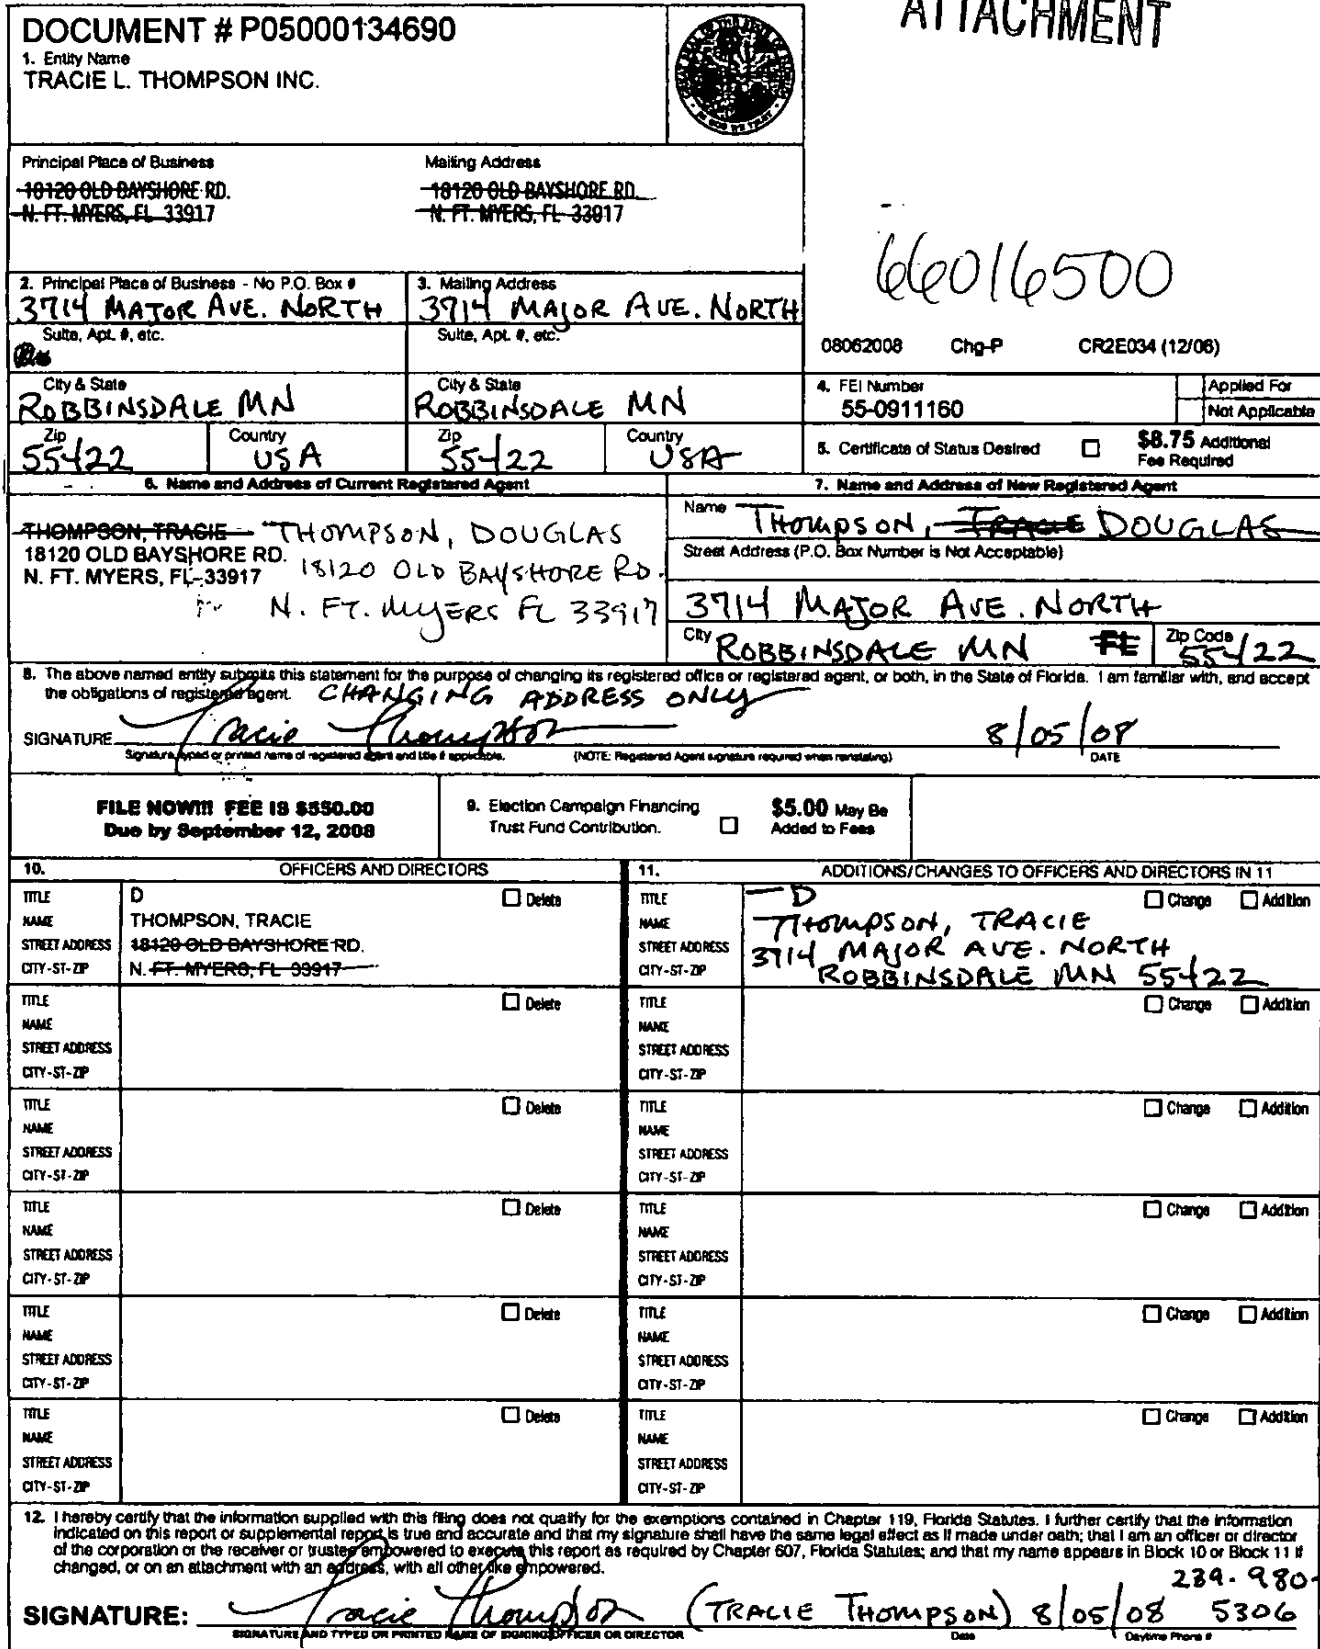 ATTACHMENT
DOCUMENT # P05000134690
1. Entity Name
TRACIE L. THOMPSON INC.
Principal Place of Business
Mailing Address
18120 OLD BAYSHORE RD.
18120 OLD BAYSHORE RD.
N. FT. MYERS, FL 33917
N. FT. MYERS, FL 33917
66016500
2. Principal Place of Business - No P.O. Box #
3. Mailing Address
3714 MAJOR AVE. NORTH
3714 MAJOR AVE. NORTH
Suite, Apt. #, etc.
Suite, Apt. #, etc.
08062008 Chg-P CR2E034 (12/06)
City & State
City & State
ROBBINSDALE MN
ROBBINSDALE MN
4. FEI Number
55-0911160
Applied For
Not Applicable
Zip
Country
Zip
Country
55422
USA
55422
USA
5. Certificate of Status Desired
$8.75 Additional
Fee Required
6. Name and Address of Current Registered Agent
THOMPSON, TRACIE THOMPSON, DOUGLAS
18120 OLD BAYSHORE RD. 18120 OLD BAYSHORE RD.
N. FT. MYERS, FL 33917
N. FT. MYERS FL 33917
7. Name and Address of New Registered Agent
Name THOMPSON, TRACIE DOUGLAS
Street Address (P.O. Box Number is Not Acceptable)
3714 MAJOR AVE. NORTH
City ROBBINSDALE MN FL Zip Code 55422
8. The above named entity submits this statement for the purpose of changing its registered office or registered agent, or both, in the State of Florida. I am familiar with, and accept
the obligations of registered agent. CHANGING ADDRESS ONLY
SIGNATURE Tracie Thompson 8/05/08
Signature, typed or printed name of registered agent and title if applicable. (NOTE: Registered Agent signature required when reinstating) DATE
FILE NOW!!! FEE IS $550.00
Due by September 12, 2008
9. Election Campaign Financing
Trust Fund Contribution.
$5.00 May Be
Added to Fees
10. OFFICERS AND DIRECTORS
11. ADDITIONS/CHANGES TO OFFICERS AND DIRECTORS IN 11
TITLE D Delete
NAME THOMPSON, TRACIE
STREET ADDRESS 18120 OLD BAYSHORE RD.
CITY-ST-ZIP N. FT. MYERS, FL 33917
TITLE D Change Addition
NAME THOMPSON, TRACIE
STREET ADDRESS 3714 MAJOR AVE. NORTH
CITY-ST-ZIP ROBBINSDALE MN 55422
TITLE Delete
NAME
STREET ADDRESS
CITY-ST-ZIP
TITLE Change Addition
NAME
STREET ADDRESS
CITY-ST-ZIP
TITLE Delete
NAME
STREET ADDRESS
CITY-ST-ZIP
TITLE Change Addition
NAME
STREET ADDRESS
CITY-ST-ZIP
TITLE Delete
NAME
STREET ADDRESS
CITY-ST-ZIP
TITLE Change Addition
NAME
STREET ADDRESS
CITY-ST-ZIP
TITLE Delete
NAME
STREET ADDRESS
CITY-ST-ZIP
TITLE Change Addition
NAME
STREET ADDRESS
CITY-ST-ZIP
TITLE Delete
NAME
STREET ADDRESS
CITY-ST-ZIP
TITLE Change Addition
NAME
STREET ADDRESS
CITY-ST-ZIP
12. I hereby certify that the information supplied with this filing does not qualify for the exemptions contained in Chapter 119, Florida Statutes. I further certify that the information
indicated on this report or supplemental report is true and accurate and that my signature shall have the same legal effect as if made under oath; that I am an officer or director
of the corporation or the receiver or trustee empowered to execute this report as required by Chapter 607, Florida Statutes; and that my name appears in Block 10 or Block 11 if
changed, or on an attachment with an address, with all other like empowered.
239-980-
SIGNATURE: Tracie Thompson (TRACIE THOMPSON) 8/05/08 5306
SIGNATURE AND TYPED OR PRINTED NAME OF SIGNING OFFICER OR DIRECTOR Date Daytime Phone #